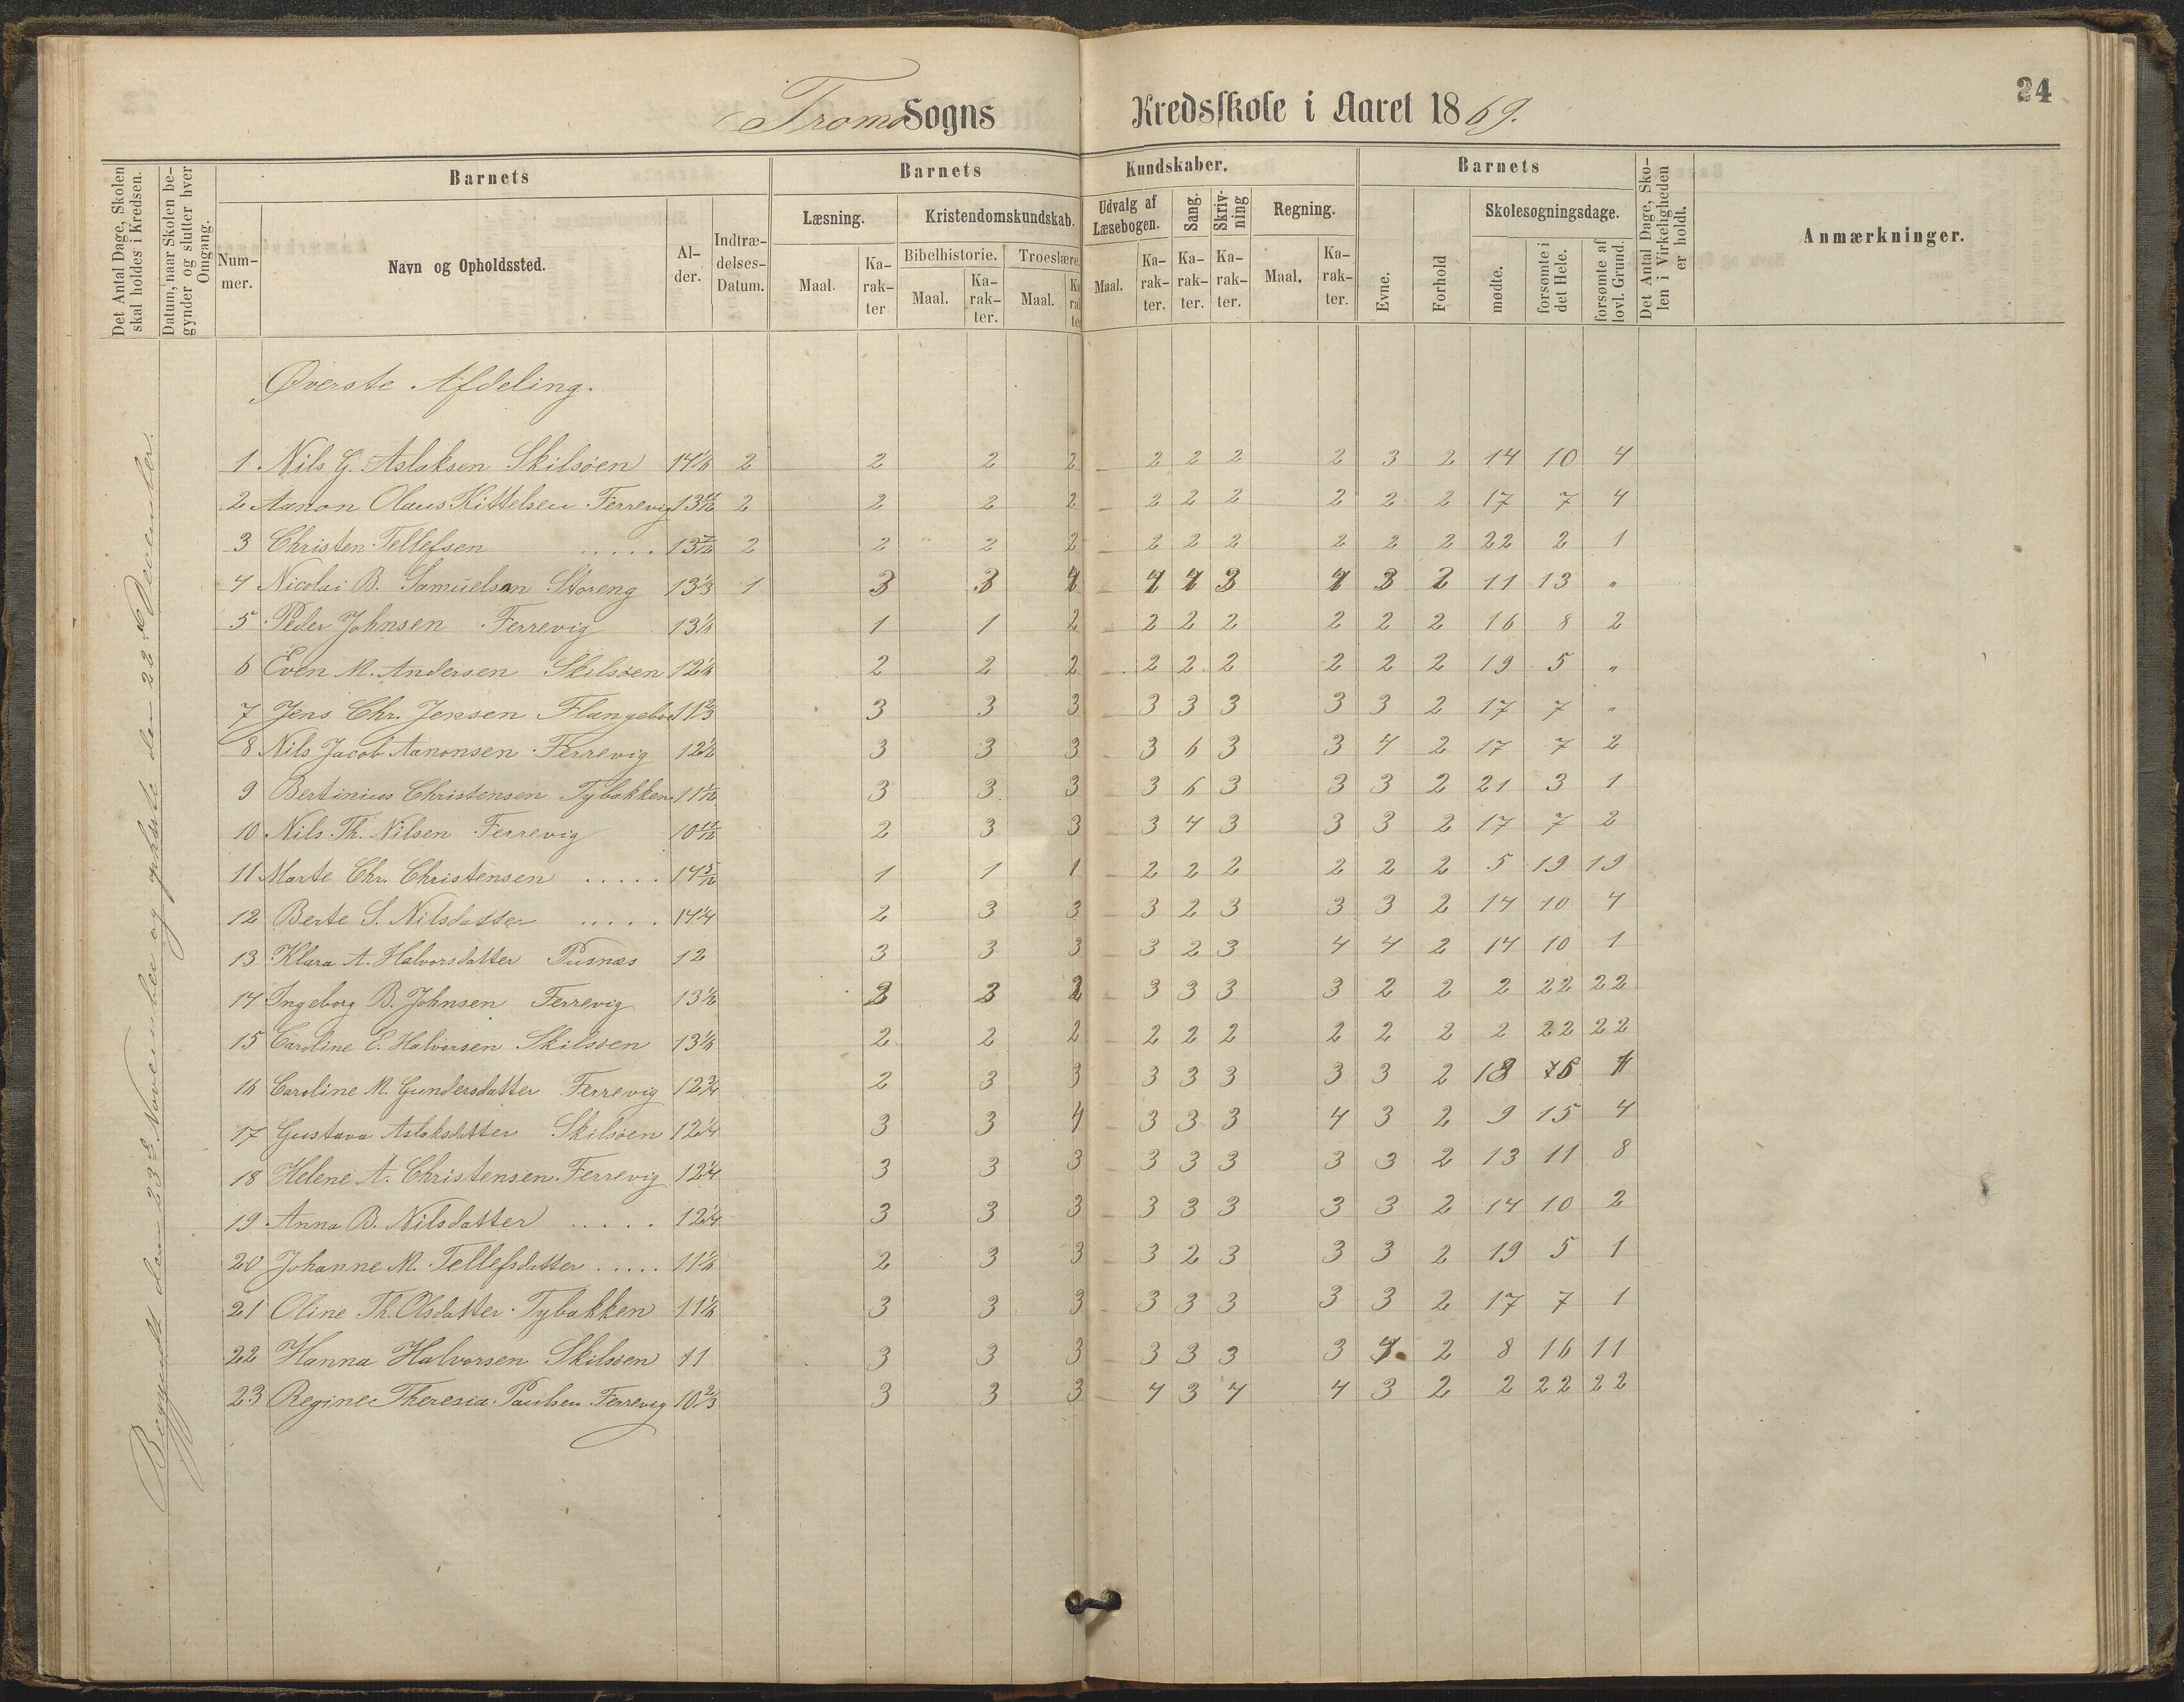 24
Tromø Sogns Kredsskole i Aaret 1869.
Det Antal Dage, Skolen skal holdes i Kredsen.
Datum, naar Skolen begynder og slutter hver Omgang.
Barnets
Nummer.
Navn og Opholdssted.
Alder.
Indtrædelses-Datum.
Barnets Kundskaber.
Læsning.
Maal.
Karakter
Kristendomskundskab.
Bibelhistorie.
Maal.
Karakter.
Troeslære.
Maal.
Udvalg af Læsebogen.
Maal.
Karakter.
Sang.
Karakter.
Skrivning
Karakter.
Regning.
Maal.
Karakter.
Barnets
Evne.
Forhold
Skolesøgningsdage.
mødte.
forsømte i det Hele.
forsømte af lovl. Grund.
Det Antal Dage, Skolen i Virkeligheden er holdt.
Anmærkninger.
Begyndt den 23de November og ophørte den 22de December.
Øverste Afdeling.
1 Nils G. Aslaksen Skilsøen 14 1/6 2 2 2 2 2 2 2 2 3 2 14 10 4
2 Aanon Olaus Kittelsen Ferrevig 13 11/12 2 2 2 2 2 2 2 2 2 2 17 7 4
3 Christen Tellefsen ..... 13 7/12 2 2 2 2 2 2 2 2 2 2 22 2 1
4 Nicolai B. Samuelsen Storeng 13 1/3 1 3 3 4 4 4 3 4 3 2 11 13 "
5 Peder Johnsen Ferrevig 13 1/6 1 1 2 2 2 2 2 2 2 16 8 2
6 Even M. Andersen Skilsøen 12 1/6 2 2 2 2 2 2 2 2 2 19 5 "
7 Jens Chr. Jensen Flangeboe 11 2/3 3 3 3 3 3 3 3 3 2 17 7 "
8 Nils Jacob Aanonsen Ferrevig 12 1/2 3 3 3 3 6 3 3 4 2 17 7 2
9 Bertinius Christensen Tybakken 11 1/12 3 3 3 3 6 3 3 3 2 21 3 1
10 Nils Th. Nilsen Ferrevig 10 11/12 2 3 3 3 4 3 3 3 2 17 7 2
11 Marte Chr. Christensen ..... 14 5/12 1 1 1 2 2 2 2 2 2 5 19 19
12 Berte S. Nilsdatter ..... 14 1/4 2 3 3 3 2 3 3 3 2 14 10 4
13 Klara A. Halvorsdatter Pusnæs 12 3 3 3 3 2 3 4 4 2 14 10 1
14 Ingeborg B. Johnsen Ferrevig 13 1/2 3 3 2 3 3 3 3 2 2 2 22 22
15 Caroline E. Halvorsen Skilsøen 13 1/6 2 2 2 2 2 2 2 2 2 2 22 22
16 Caroline M. Gundersdatter Ferrevig 12 3/4 2 3 3 3 3 3 3 3 2 18 6
17 Gustava Aslaksdatter Skilsøen 12 1/4 3 3 4 3 3 3 4 3 2 9 15 4
18 Helene A. Christensen Ferrevig 12 1/4 3 3 3 3 3 3 3 3 2 13 11 8
19 Anna B. Nilsdatter ..... 12 1/4 3 3 3 3 3 3 3 3 2 14 10 2
20 Johanne M. Tellefsdatter ..... 11 1/6 2 3 3 3 2 3 3 3 2 19 5 1
21 Oline Th. Olsdatter Tybakken 11 1/6 3 3 3 3 3 3 3 3 2 17 7 1
22 Hanna Halvorsen Skilsøen 11 3 3 3 3 3 3 3 2 8 16 11
23 Regine Theresia Paulsen Ferrevig 10 2/3 3 3 3 4 3 4 4 3 2 2 22 22